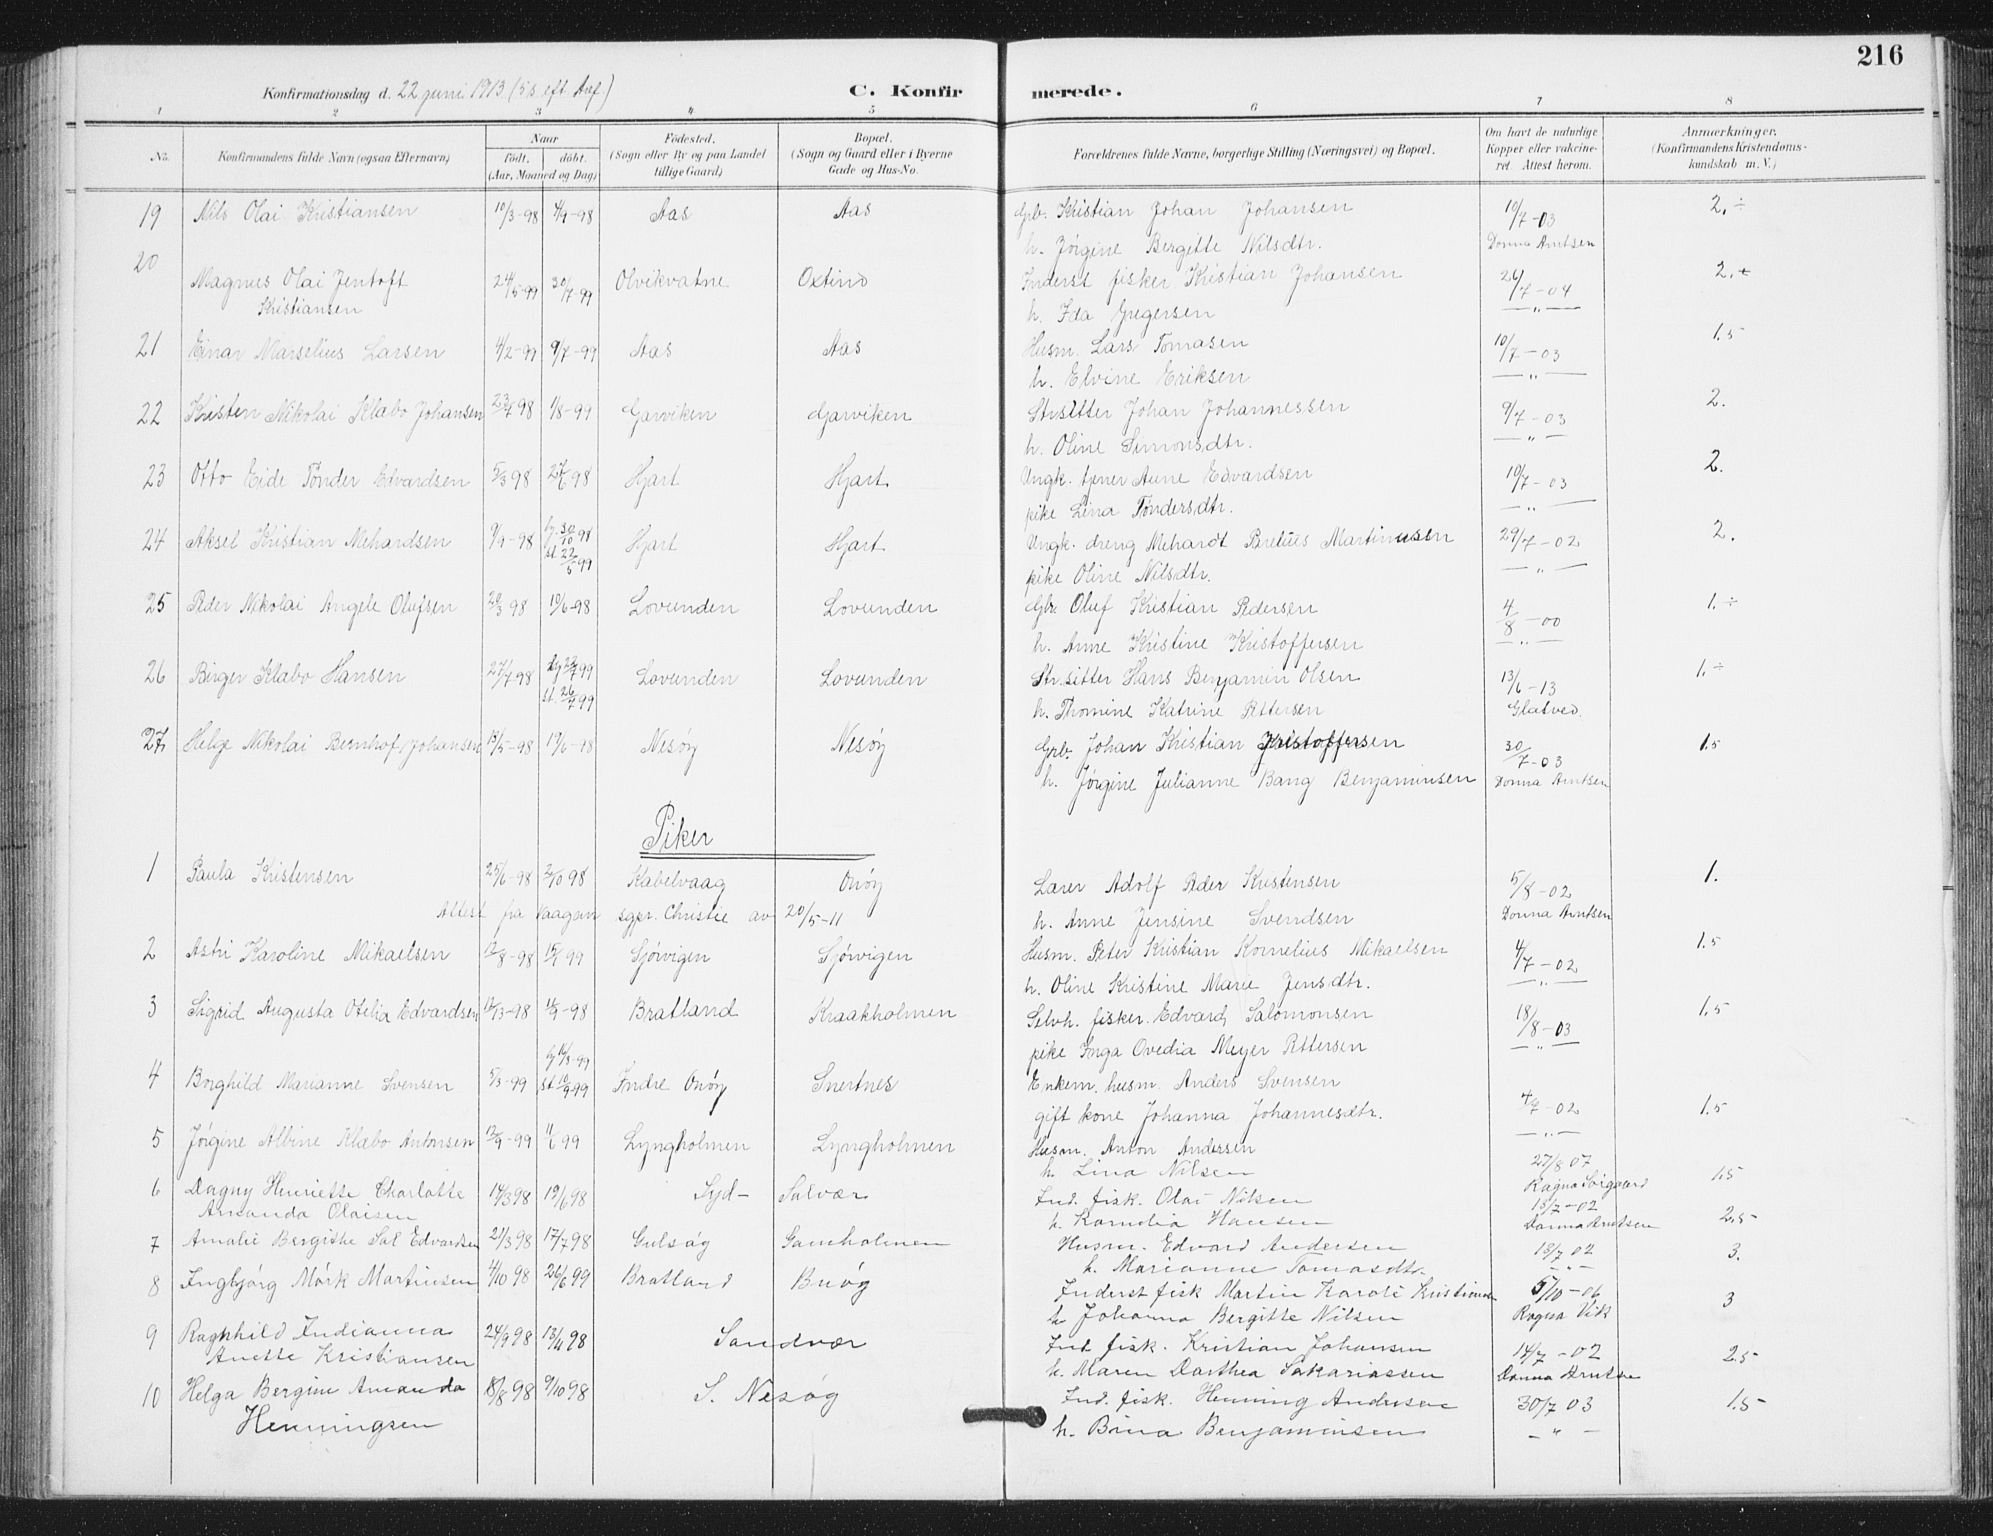 216
Konfirmationsdag d. 22 juni 1913 (5 s. eft. Tref.) C. Konfirmerede.
1 2 3 4 5 6 7 8
No. Konfirmandens fulde Navn (ogsaa Efternavn) Naar födt. döbt. (Aar, Maaned og Dag) Födested. (Sogn eller By og paa Landet tillige Gaard) Bopæl. (Sogn og Gaard eller i Byerne Gade og Hus-No. Forældrenes fulde Navne, borgerlige Stilling (Næringsvei) og Bopæl. Om havt de naturlige Kopper eller vakcineret. Attest herom. Anmærkninger. (Konfirmandens Kristendomskundskab m. V.)
19 Nils Olai Kristiansen 10/3-98 4/9-98 Aas Aas Grb. Kristian Johan Johansen 10/7-03 2.÷
h. Jørgine Bergitte Nilsdtr. Donna Arntsen
20 Magnus Olai Jentoft 24/5-99 30/7-99 Olvikvatne Oxtind Inderst fisker Kristian Johansen 26/7-04 2.+
Kristiansen h. Ida Gregersen — „ —
21 Einar Marselius Larsen 4/2-99 9/7-99 Aas Aas Husm. Lars Tomasen 10/7-03 1.5
h. Elvine Eriksen — „ —
22 Kristen Nikolai Klabo Johansen 23/7 98 1/8-99 Garviken Garviken Strsitter Johan Johannessen 9/7-03 2.
h. Oline Simonsdtr. — „ —
23 Otto Eide Tönder Edvardsen 5/3 98 27/6 98 Hjart Hjart Ungk. tjener Aune Edvardsen 10/7-03 2.
pike Lina Tøndersdtr. — „ —
24 Aksel Kristian Mehardsen 9/9-98 hj. 30/10 98 Hjart Hjart Ungk. dreng Mehardt Parelius Martinusen 29/7-02 2.
st. 22/5 99 pike Oline Nilsdtr. — „ —
25 Peder Nikolai Angele Olufsen 20/3 98 19/6-98 Lovunden Lovunden Gbr. Oluf Kristian Pedersen 4/8-00 1.÷
h. Anne Kristine Kristoffersen — „ —
26 Birger Klabo Hansen 27/7 98 hj 22/7 99 Lovunden Lovunden Str.sitter Hans Benjamin Olsen 13/6-13 1.÷
st. 26/7 99 h. Thomine Katrine Pettersen Glatved
27 Helge Nikolai Bernhof Johansen 13/5-98 19/6-98 Nesøy Nesøy Grb. Johan Kristian Kristoffersen 30/7-03 1.5
h. Jørgine Julianne Bang Benjaminsen Donna Arntsen
Piker
1 Paula Kristensen 25/6-98 2/10 98 Kabelvaag Onøy Lærer Adolf Peder Kristensen 5/8-02 1.
Attest fra Vaagan sgpr. Christie av 20/5-11 h. Anne Jensine Svendsen Donna Arntsen
2 Astri Karoline Mikaelsen 12/8-98 15/1 99 Sjøvigen Sjøvigen Husm. Peter Kristian Kornelius Mikaelsen 4/7-02 1.5
h. Oline Kristine Marie Jensdtr. — „ —
3 Sigrid Augusta Otelia Edvardsen 12/3-98 11/9-98 Bratland Kraakholmen Selvh. fisker Edvard Salomonsen 18/8-03 1.5
pike Inga Ovedia Meyer Pettersen — „ —
4 Borghild Marianne Svensen 5/3-99 hj 16/3-99 Indre Onøy Snertnes Enkem. husm. Anders Svensen 4/7-02 1.5
st. 10/9-99 gift kone Johanna Johannesdtr. — „ —
5 Jørgine Albine Klæbo Antonsen 12/9-99 11/6 99 Lyngholmen Lyngholmen Husm. Anton Andersen 27/8 07 1.5
h. Lina Nilsen Ragna Sörgaard
6 Dagny Henriette Charlotte 14/3 98 19/6 98 Syd- Salvær Ind. fisk. Olai Nilsen 13/7-02 2.5
Amanda Olaisen h. Kornelia Hansen Donna Arntsen
7 Amalie Bergithe Sal Edvardsen 21/3 98 17/7 98 Gulsøy Gamholmen Husm. Edvard Andersen 13/7 02 3.
h. Marianne Tomasdtr. — „ —
8 Ingbjørg Mörk Martinsen 4/10 98 26/6 99 Bratland Buøy Inderst fisk Martin Karoli Kristiansen 5/10-06 3
h. Johanna Bergitte Nilsen Ragna Vik
9 Ragnhild Indianna 24/9 98 13/11 98 Sandvær Ind. fisk. Kristian Johansen 14/7-02 2.5
Anette Kristiansen h. Maren Darthea Sakariassen Donna Arntsen
10 Helga Bergine Amanda 18/8 98 9/10 98 S. Nesøy Ind. fisk. Henning Andersen 30/7 03 1.5
Henningsen h. Bina Benjaminsen — „ —